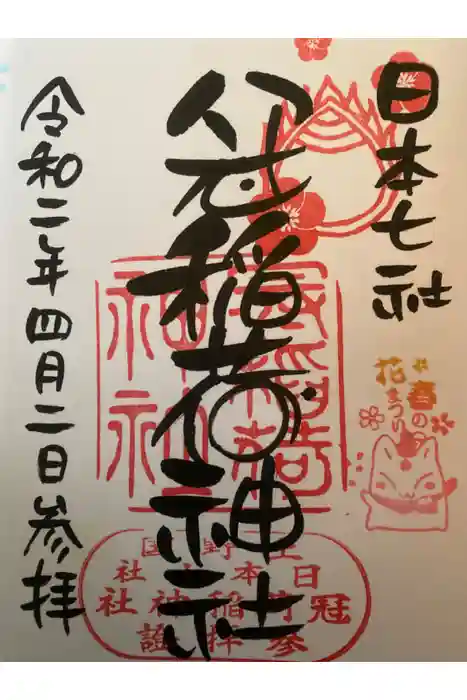 日本七社
冠稲荷神社
令和二年四月二日参拝
春の
花まつり
上野国
日本七社
冠稲荷神社
参拝證